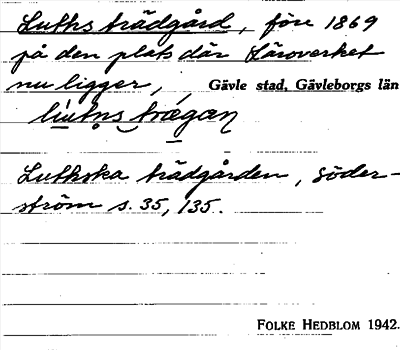 Luths trädgård, före 1869
på den plats där Läroverket
nu ligger, Gävle stad, Gävleborgs län
Luthska trädgården, Söder-
ström s. 35, 135.
FOLKE HEDBLOM 1942.